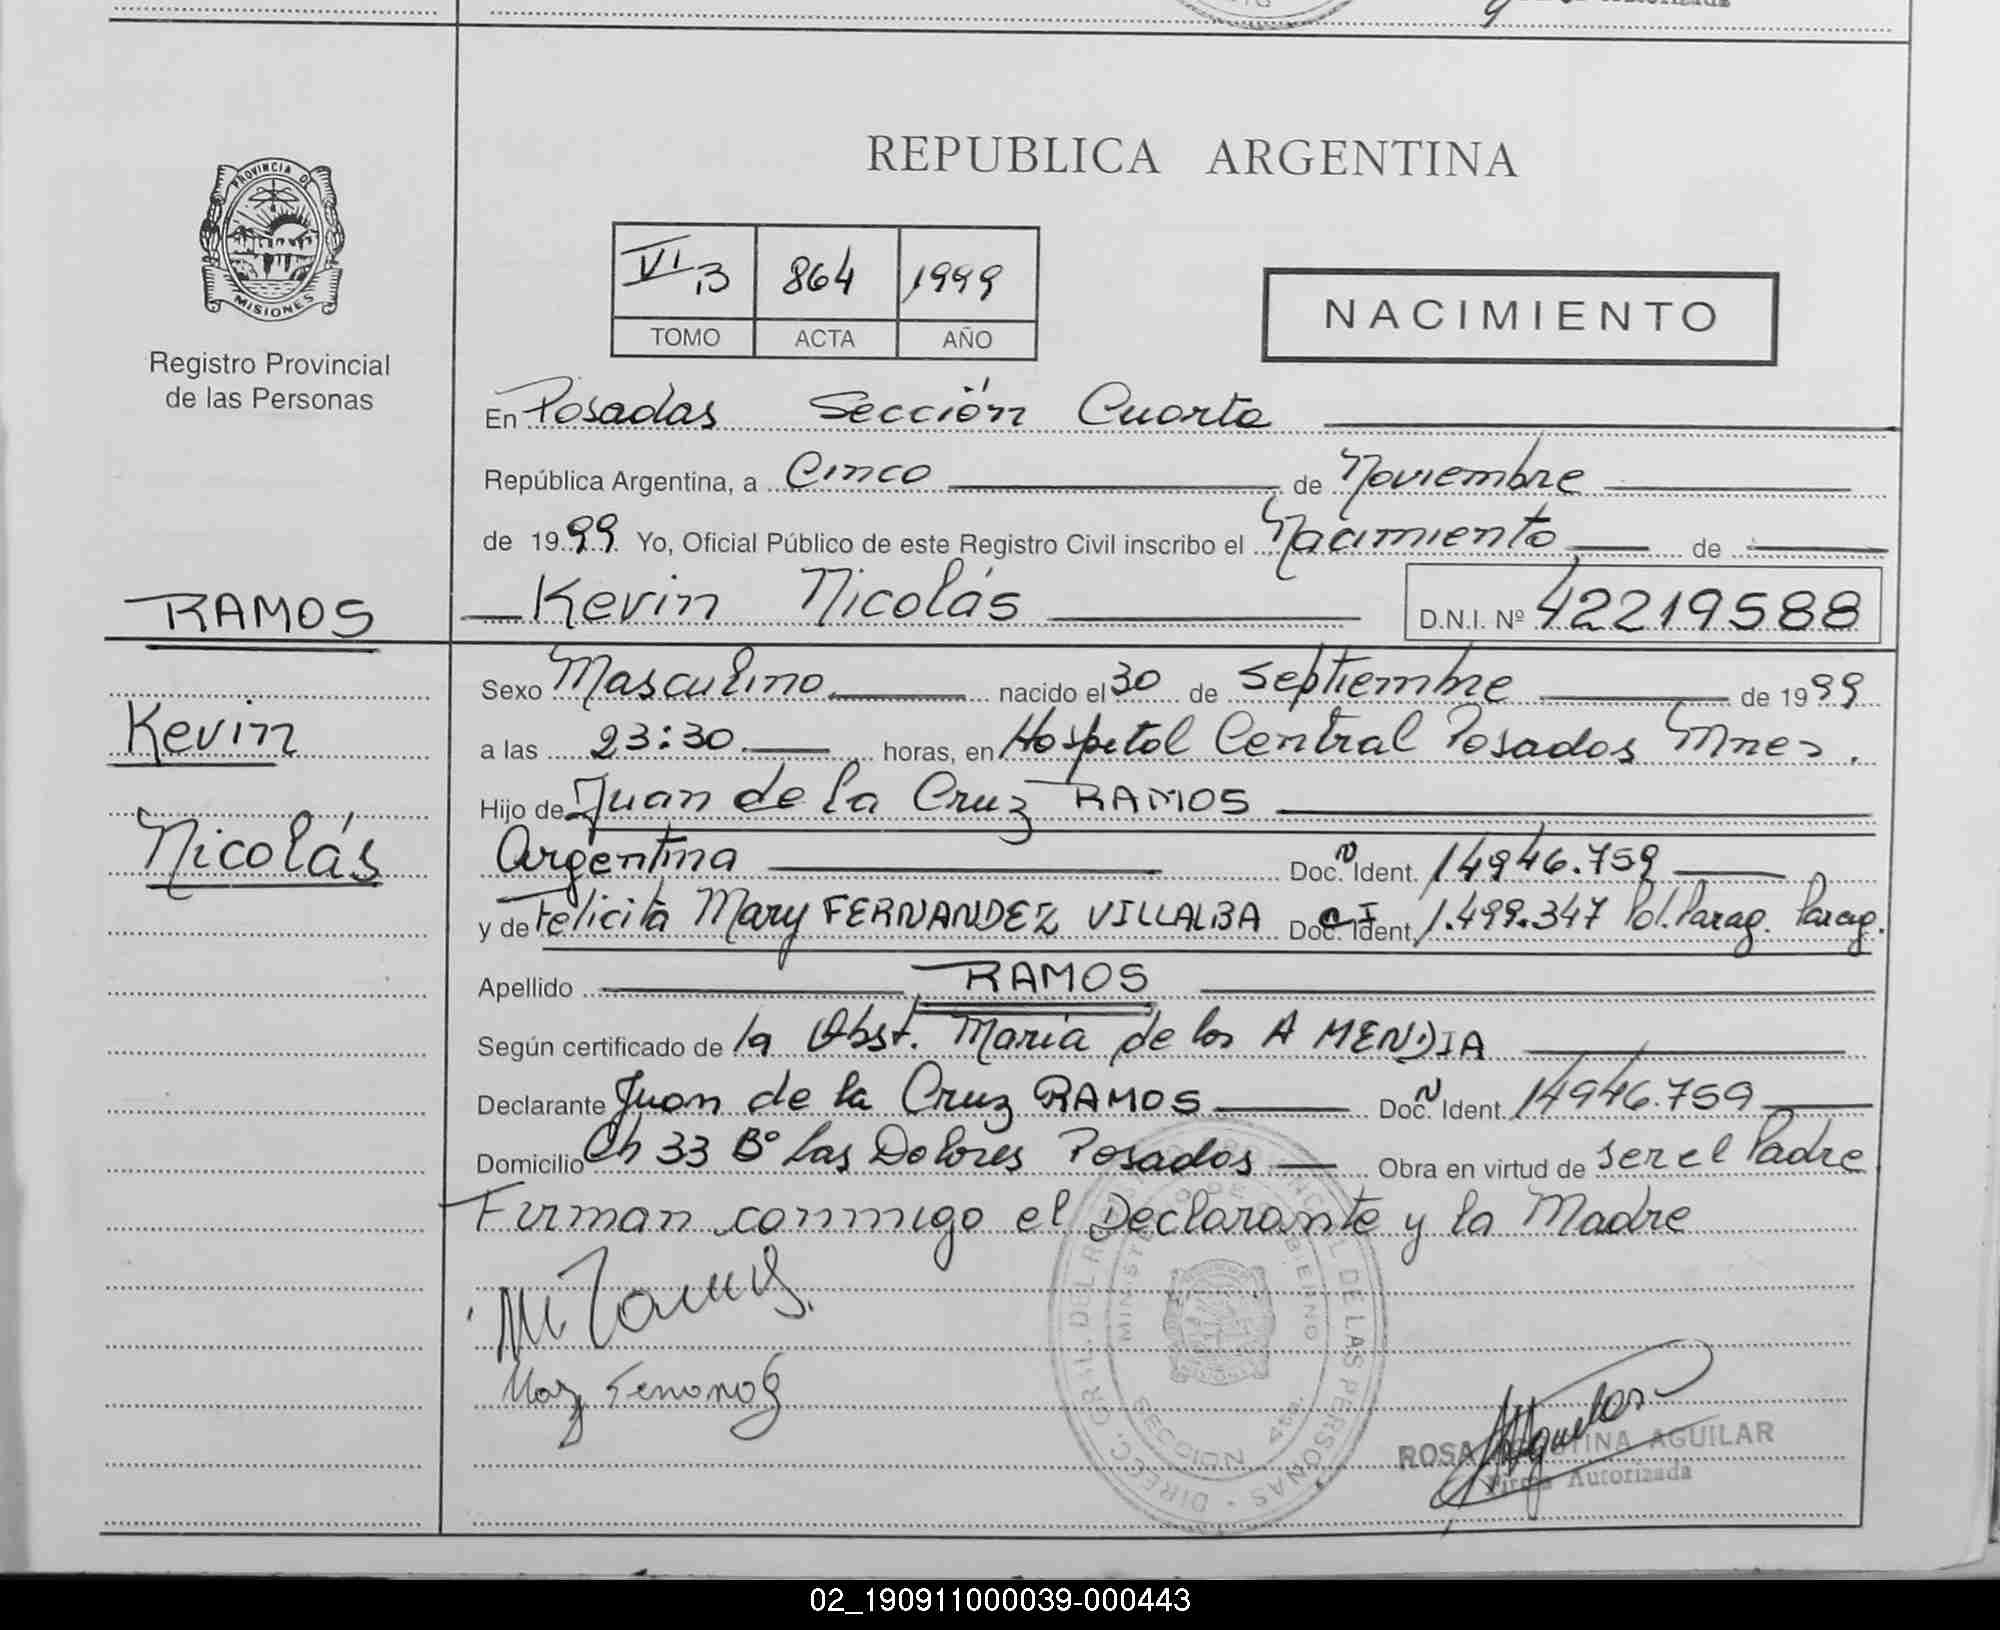 PROVINCIA DE
MISIONES
Registro Provincial
de las Personas
RAMOS
Kevin
Nicolás
REPUBLICA ARGENTINA
VI 864 1999
TOMO ACTA AÑO
NACIMIENTO
En Posadas Sección Cuarta
República Argentina, a Cinco de Noviembre
de 1999 Yo, Oficial Público de este Registro Civil inscribo el Nacimiento de
Kevin Nicolás D.N.I. Nº 42219588
Sexo Masculino nacido el 30 de Septiembre de 1999
a las 23:30 horas, en Hospital Central Posadas Mnes.
Hijo de Juan de la Cruz RAMOS
Argentina Doc. Ident. 14946.759
y de Felicita Mary FERNANDEZ VILLALBA Doc. Ident. 1.499.347 Pol. Parag. Parag.
Apellido RAMOS
Según certificado de la Obst. María de los A MENDIA
Declarante Juan de la Cruz RAMOS Doc. Ident. 14946.759
Domicilio Ch 33 Bº las Dolores Posadas Obra en virtud de ser el Padre
Firman conmigo el Declarante y la Madre
DIREC. GRAL. DEL REGISTRO PROVINCIAL DE LAS PERSONAS
MINISTERIO DE GOBIERNO
SECCION 4ta.
ROSA AGUILAR
Firma Autorizada
02_190911000039-000443